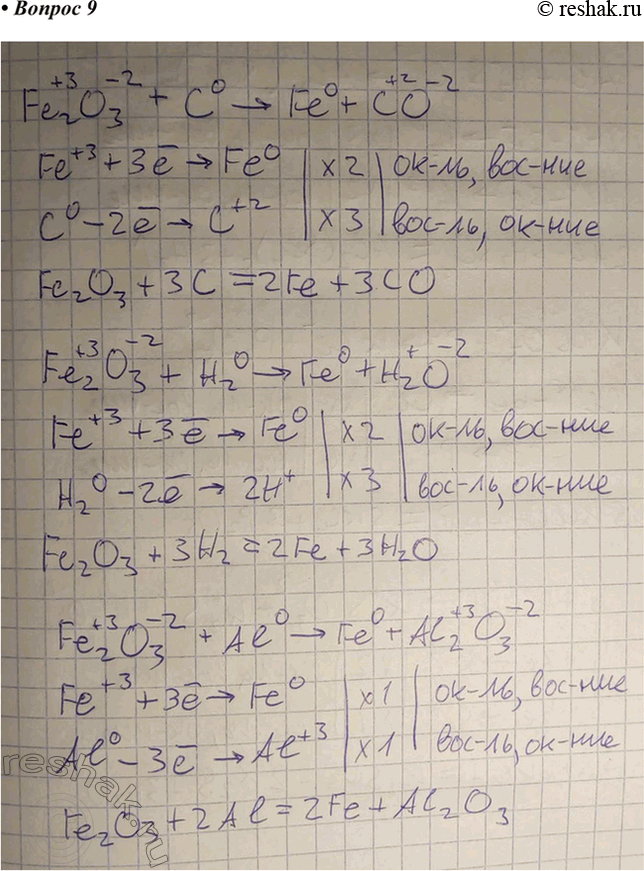 • Вопрос 9
© reshak.ru
Fe₂⁺³O₃⁻² + C⁰ → Fe⁰ + C⁺²O⁻²
Fe⁺³ + 3ē → Fe⁰ | x 2 | ок-ль, вос-ние
C⁰ - 2ē → C⁺² | x 3 | вос-ль, ок-ние
Fe₂O₃ + 3C = 2Fe + 3CO
Fe₂⁺³O₃⁻² + H₂⁰ → Fe⁰ + H₂⁺O⁻²
Fe⁺³ + 3ē → Fe⁰ | x 2 | ок-ль, вос-ние
H₂⁰ - 2ē → 2H⁺ | x 3 | вос-ль, ок-ние
Fe₂O₃ + 3H₂ = 2Fe + 3H₂O
Fe₂⁺³O₃⁻² + Al⁰ → Fe⁰ + Al₂⁺³O₃⁻²
Fe⁺³ + 3ē → Fe⁰ | x 1 | ок-ль, вос-ние
Al⁰ - 3ē → Al⁺³ | x 1 | вос-ль, ок-ние
Fe₂O₃ + 2Al = 2Fe + Al₂O₃
reshak.ru